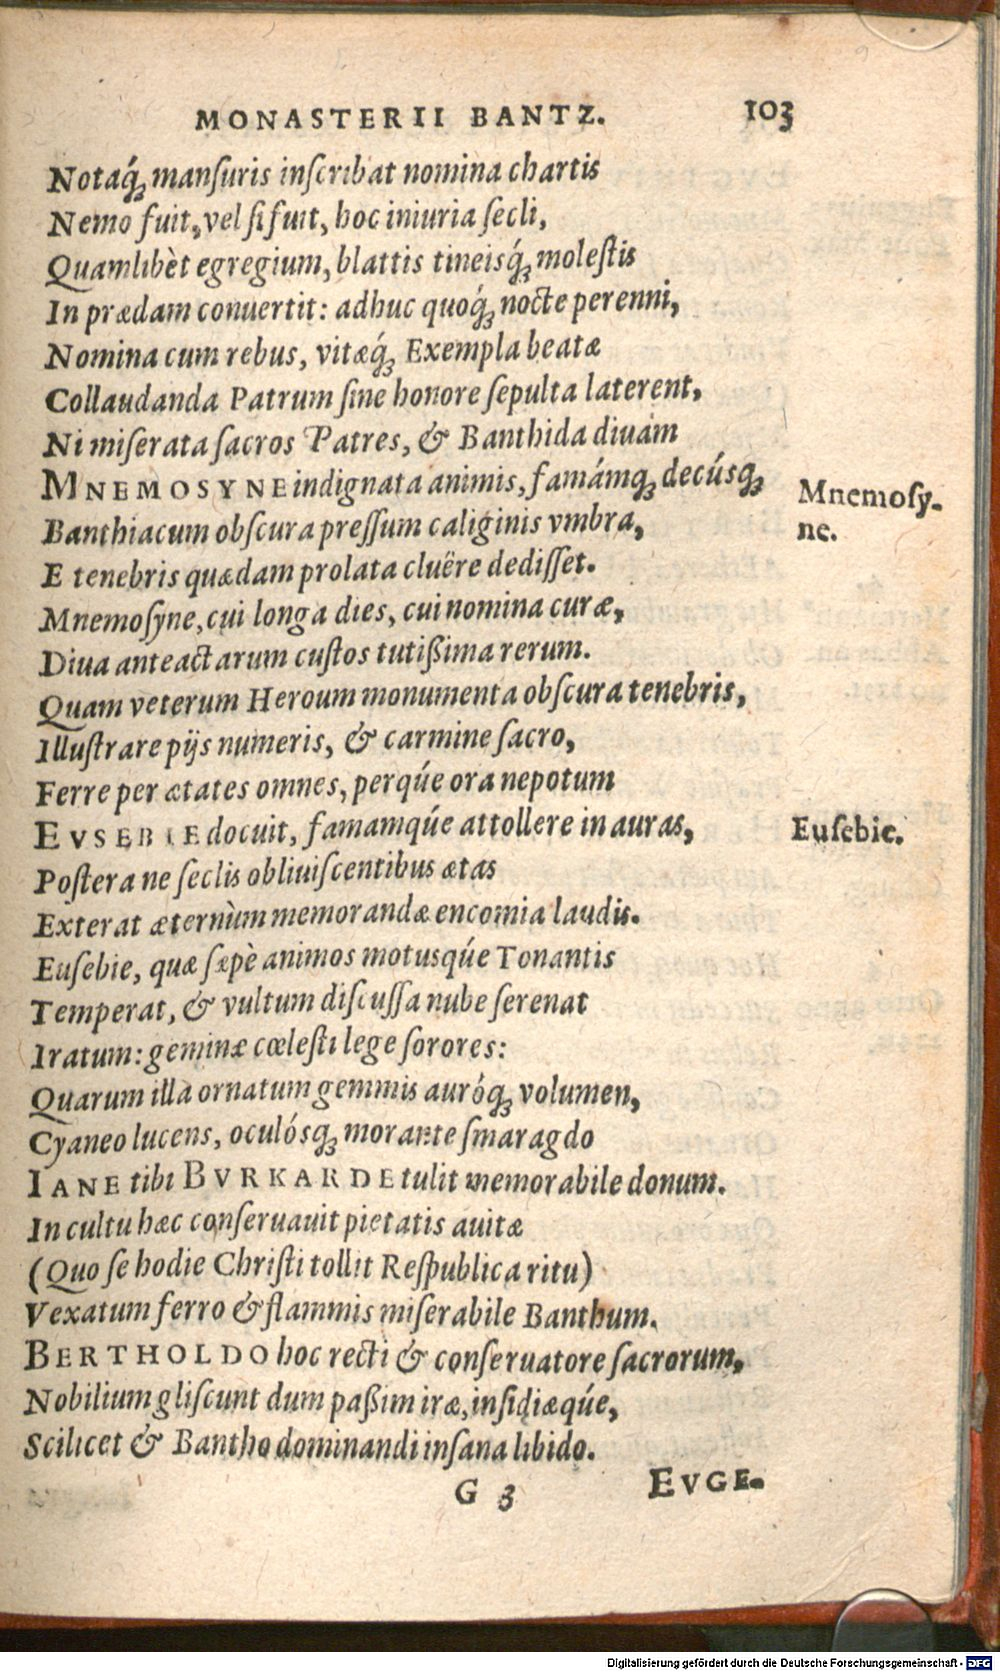 MONASTERII BANTZ. 103
Notaq́; mansuris inscribat nomina chartis
Nemo fuit, vel si fuit, hoc iniuria secli,
Quamlibèt egregium, blattis tineisq́; molestis
In prædam conuertit: adhuc quoq́; nocte perenni,
Nomina cum rebus, vitæq́; Exempla beatæ
Collaudanda Patrum sine honore sepulta laterent,
Ni miserata sacros Patres, & Banthida diuam
MNEMOSYNE indignata animis, famámq; decúsq;
Mnemosy-
ne.
Banthiacum obscura pressum caliginis vmbra,
E tenebris quædam prolata cluëre dedisset.
Mnemosyne, cui longa dies, cui nomina curæ,
Diua anteactarum custos tutißima rerum.
Quam veterum Heroum monumenta obscura tenebris,
Illustrare pijs numeris, & carmine sacro,
Ferre per ætates omnes, perqúe ora nepotum
EVSEBIE docuit, famamqúe attollere in auras,
Eusebie.
Postera ne seclis obliuiscentibus ætas
Exterat æternùm memorandæ encomia laudis.
Eusebie, quæ sæpè animos motusqúe Tonantis
Temperat, & vultum discussa nube serenat
Iratum: geminæ cœlesti lege sorores:
Quarum illa ornatum gemmis auróq; volumen,
Cyaneo lucens, oculósq; morante smaragdo
IANE tibi BVRKARDE tulit memorabile donum.
In cultu hæc conseruauit pietatis auitæ
(Quo se hodie Christi tollit Respublica ritu)
Vexatum ferro & flammis miserabile Banthum.
BERTHOLDO hoc recti & conseruatore sacrorum,
Nobilium gliscunt dum paßim iræ, insidiæqúe,
Scilicet & Bantho dominandi insana libido.
G 3 EVGE-
Digitalisierung gefördert durch die Deutsche Forschungsgemeinschaft - DFG